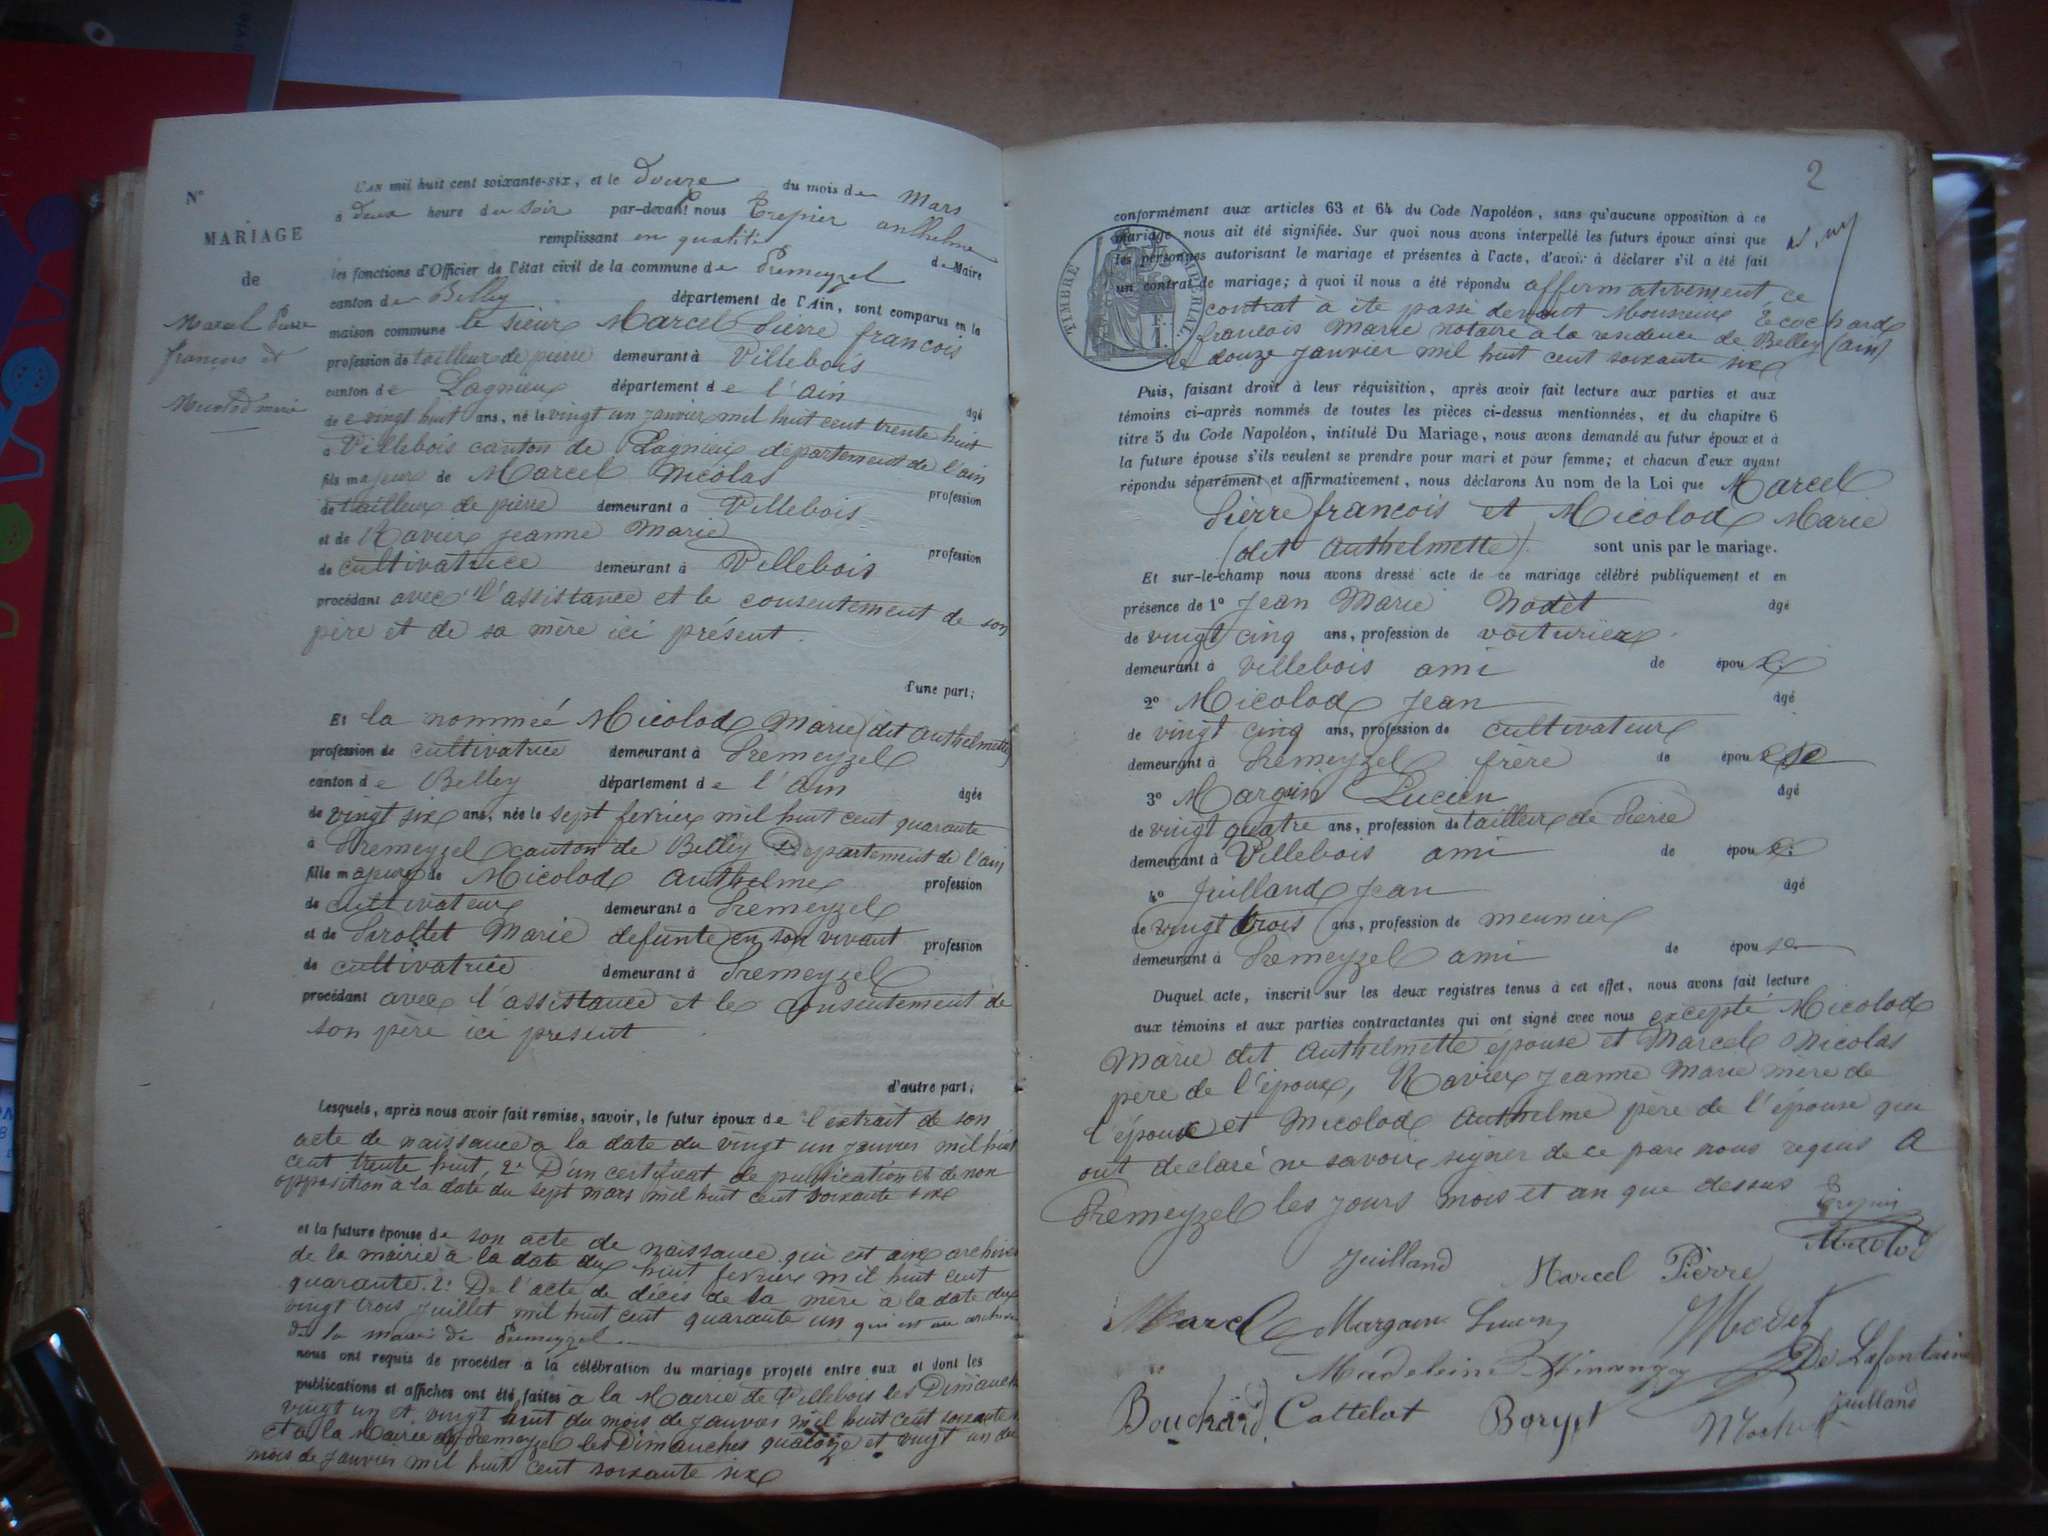 N°
MARIAGE
de
Marcel Pierre
françois et
Micolod marie
L'AN mil huit cent soixante-six, et le douze du mois de Mars
à deux heure du soir par-devant nous Trepier anthelme
remplissant en qualité de Maire
les fonctions d'Officier de l'état civil de la commune de Premeyzel
canton de Belley département de l'Ain, sont comparus en la
maison commune le sieur Marcel Pierre francois
profession de tailleur de pierre demeurant à Villebois
canton de Lagnieu département de l'ain
âgé
de vingt huit ans, né le vingt un janvier mil huit cent trente huit
à Villebois canton de Lagnieu département de l'ain
fils majeur de Marcel Nicolas profession
de tailleur de pierre demeurant à Villebois
et de Ravier jeanne Marie profession
de cultivatrice demeurant à Villebois
procédant avec l'assistance et le consentement de son
père et de sa mère ici présent.
d'une part;
Et la nommeé Micolod Marie (dit anthelmette)
profession de cultivatrice demeurant à Premeyzel
canton de Belley département de l'ain âgée
de vingt six ans, née le sept fevrier mil huit cent quarante
à Premeyzel canton de Belley Departement de l'ain
fille majeure de Micolod anthelme profession
de cultivateur demeurant à Premeyzel
et de Marie defunte en son vivant profession
de cultivatrice demeurant à Premeyzel
procédant avec l'assistance et le consentement de
son père ici present
d'autre part;
Lesquels, après nous avoir fait remise, savoir, le futur époux de l'extrait de son
acte de naissance a la date du vingt un janvier mil huit
cent trente huit, 2° D'un certificat de publication et de non
opposition à la date du sept mars mil huit cent soixante six
et la future épouse de son acte de naissance qui est aux archives
de la mairie à la date du huit fevrier mil huit cent
quarante. 2° De l'acte de décès de sa mère à la date du
vingt trois juillet mil huit cent quarante un qui est aux archives
de la mairie de Premeyzel
nous ont requis de procéder à la célébration du mariage projeté entre eux et dont les
publications et affiches ont été faites à la Mairie de Villebois les Dimanches
vingt un et vingt huit du mois de janvier mil huit cent soixante six
et à la Mairie de Premeyzel les Dimanches quatorze et vingt un du
mois de janvier mil huit cent soixante six
2
conformément aux articles 63 et 64 du Code Napoléon, sans qu'aucune opposition à ce
mariage nous ait été signifiée. Sur quoi nous avons interpellé les futurs époux ainsi que
les personnes autorisant le mariage et présentes à l'acte, d'avoir à déclarer s'il a été fait
un contrat de mariage; à quoi il nous a été répondu affirmativement, ce
contrat à ete passé devant Monsieur Ecochard
francois Marie notaire a la residence de Belley (ain)
le douze janvier mil huit cent soixante six
TIMBRE IMPÉRIAL
Puis, faisant droit à leur réquisition, après avoir fait lecture aux parties et aux
témoins ci-après nommés de toutes les pièces ci-dessus mentionnées, et du chapitre 6
titre 5 du Code Napoléon, intitulé Du Mariage, nous avons demandé au futur époux et à
la future épouse s'ils veulent se prendre pour mari et pour femme; et chacun d'eux ayant
répondu séparément et affirmativement, nous déclarons Au nom de la Loi que Marcel
Pierre francois et Micolod Marie
(dit anthelmette) sont unis par le mariage.
Et sur-le-champ nous avons dressé acte de ce mariage célébré publiquement et en
présence de 1° Jean Marie Nodet âgé
de vingt cinq ans, profession de voiturier
demeurant à villebois ami de époux
2° Micolod Jean âgé
de vingt cinq ans, profession de cultivateur
demeurant à Premeyzel frère de épouse
3° Margoin Lucien âgé
de vingt quatre ans, profession de tailleur de Pierre
demeurant à Villebois ami de époux
4° Juilland Jean âgé
de vingt trois ans, profession de meunier
demeurant à Premeyzel ami de épouse
Duquel acte, inscrit sur les deux registres tenus à cet effet, nous avons fait lecture
aux témoins et aux parties contractantes qui ont signé avec nous excepté Micolod
Marie dit anthelmette épouse et Marcel Nicolas
père de l'époux, Ravier jeanne Marie mère de
l'époux et Micolod anthelme père de l'épouse qui
ont declaré ne savoir signer de ce par nous requis A
Premeyzel les jours mois et an que dessus
Trepier
Micolod
Juilland Marcel Pierre
Marcel Margoin Lucien Nodet
Madeleine De Lafontaine
Bouchard Cattelot Juilland